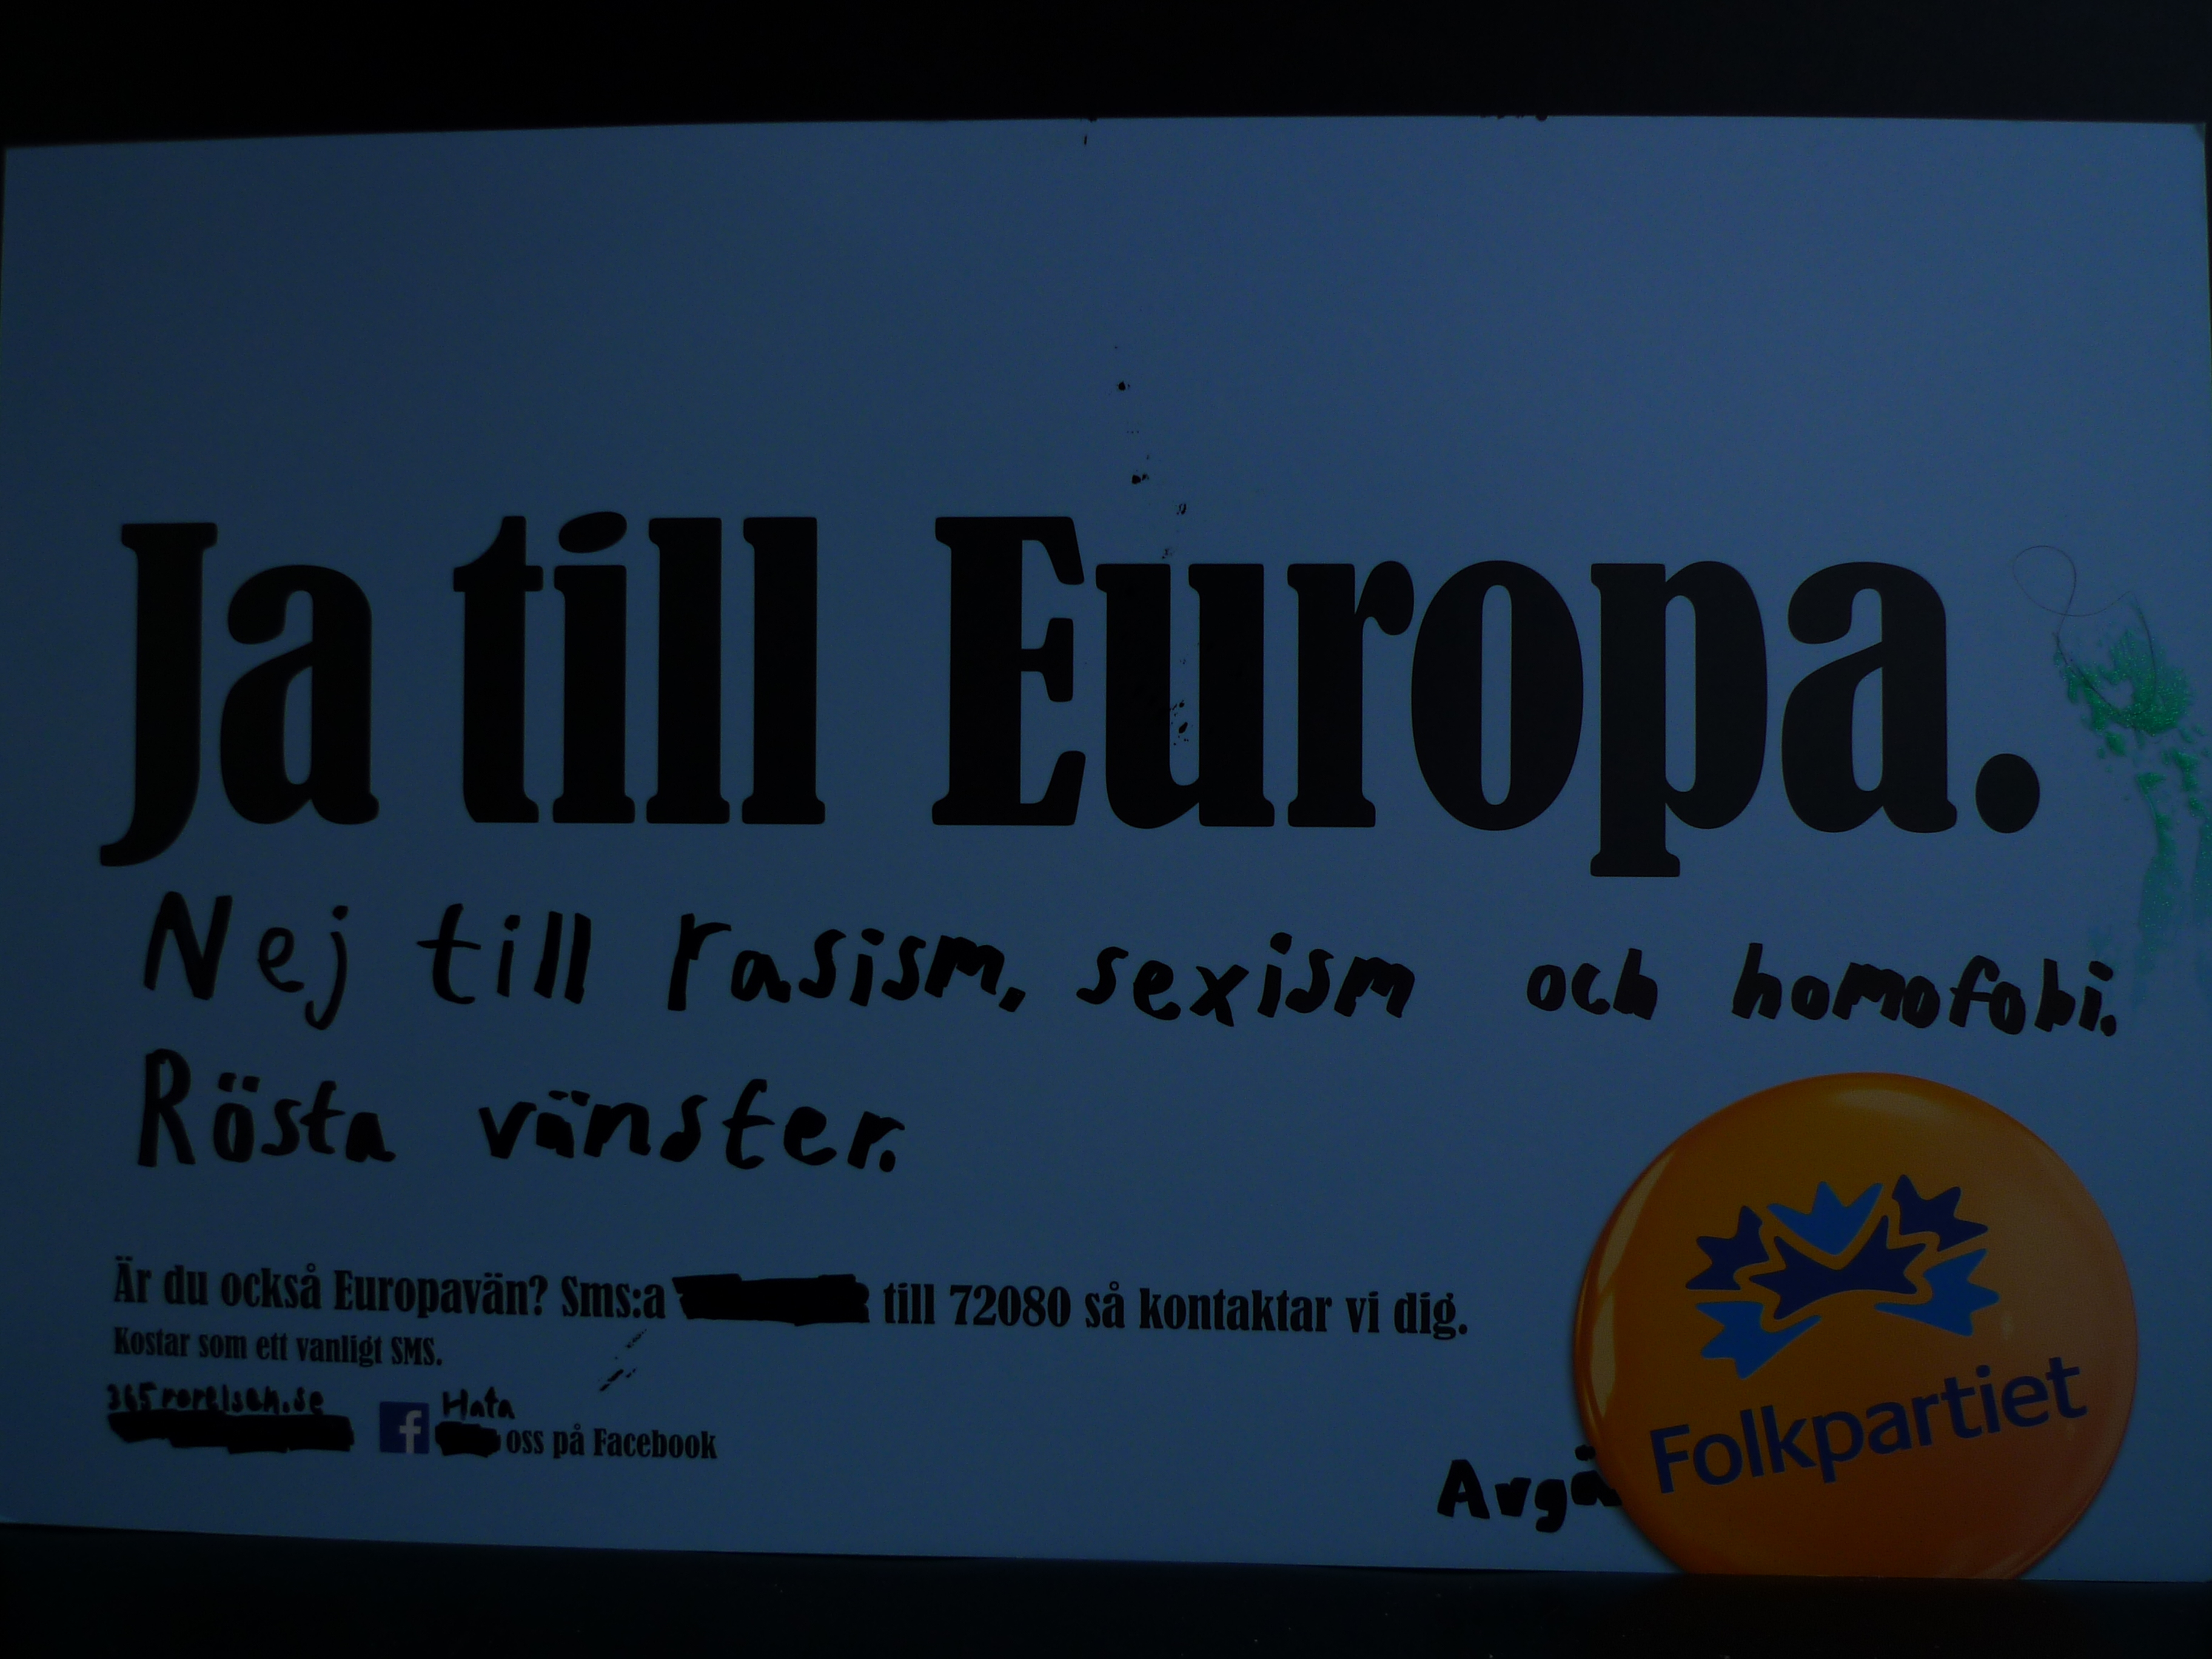 Ja till Europa.
Nej till rasism, sexism och homofobi.
Rösta vänster.
Är du också Europavän? Sms:a till 72080 så kontaktar vi dig.
Kostar som ett vanligt SMS.
365rorelsen.se
Hata
f oss på Facebook
Avgå
Folkpartiet